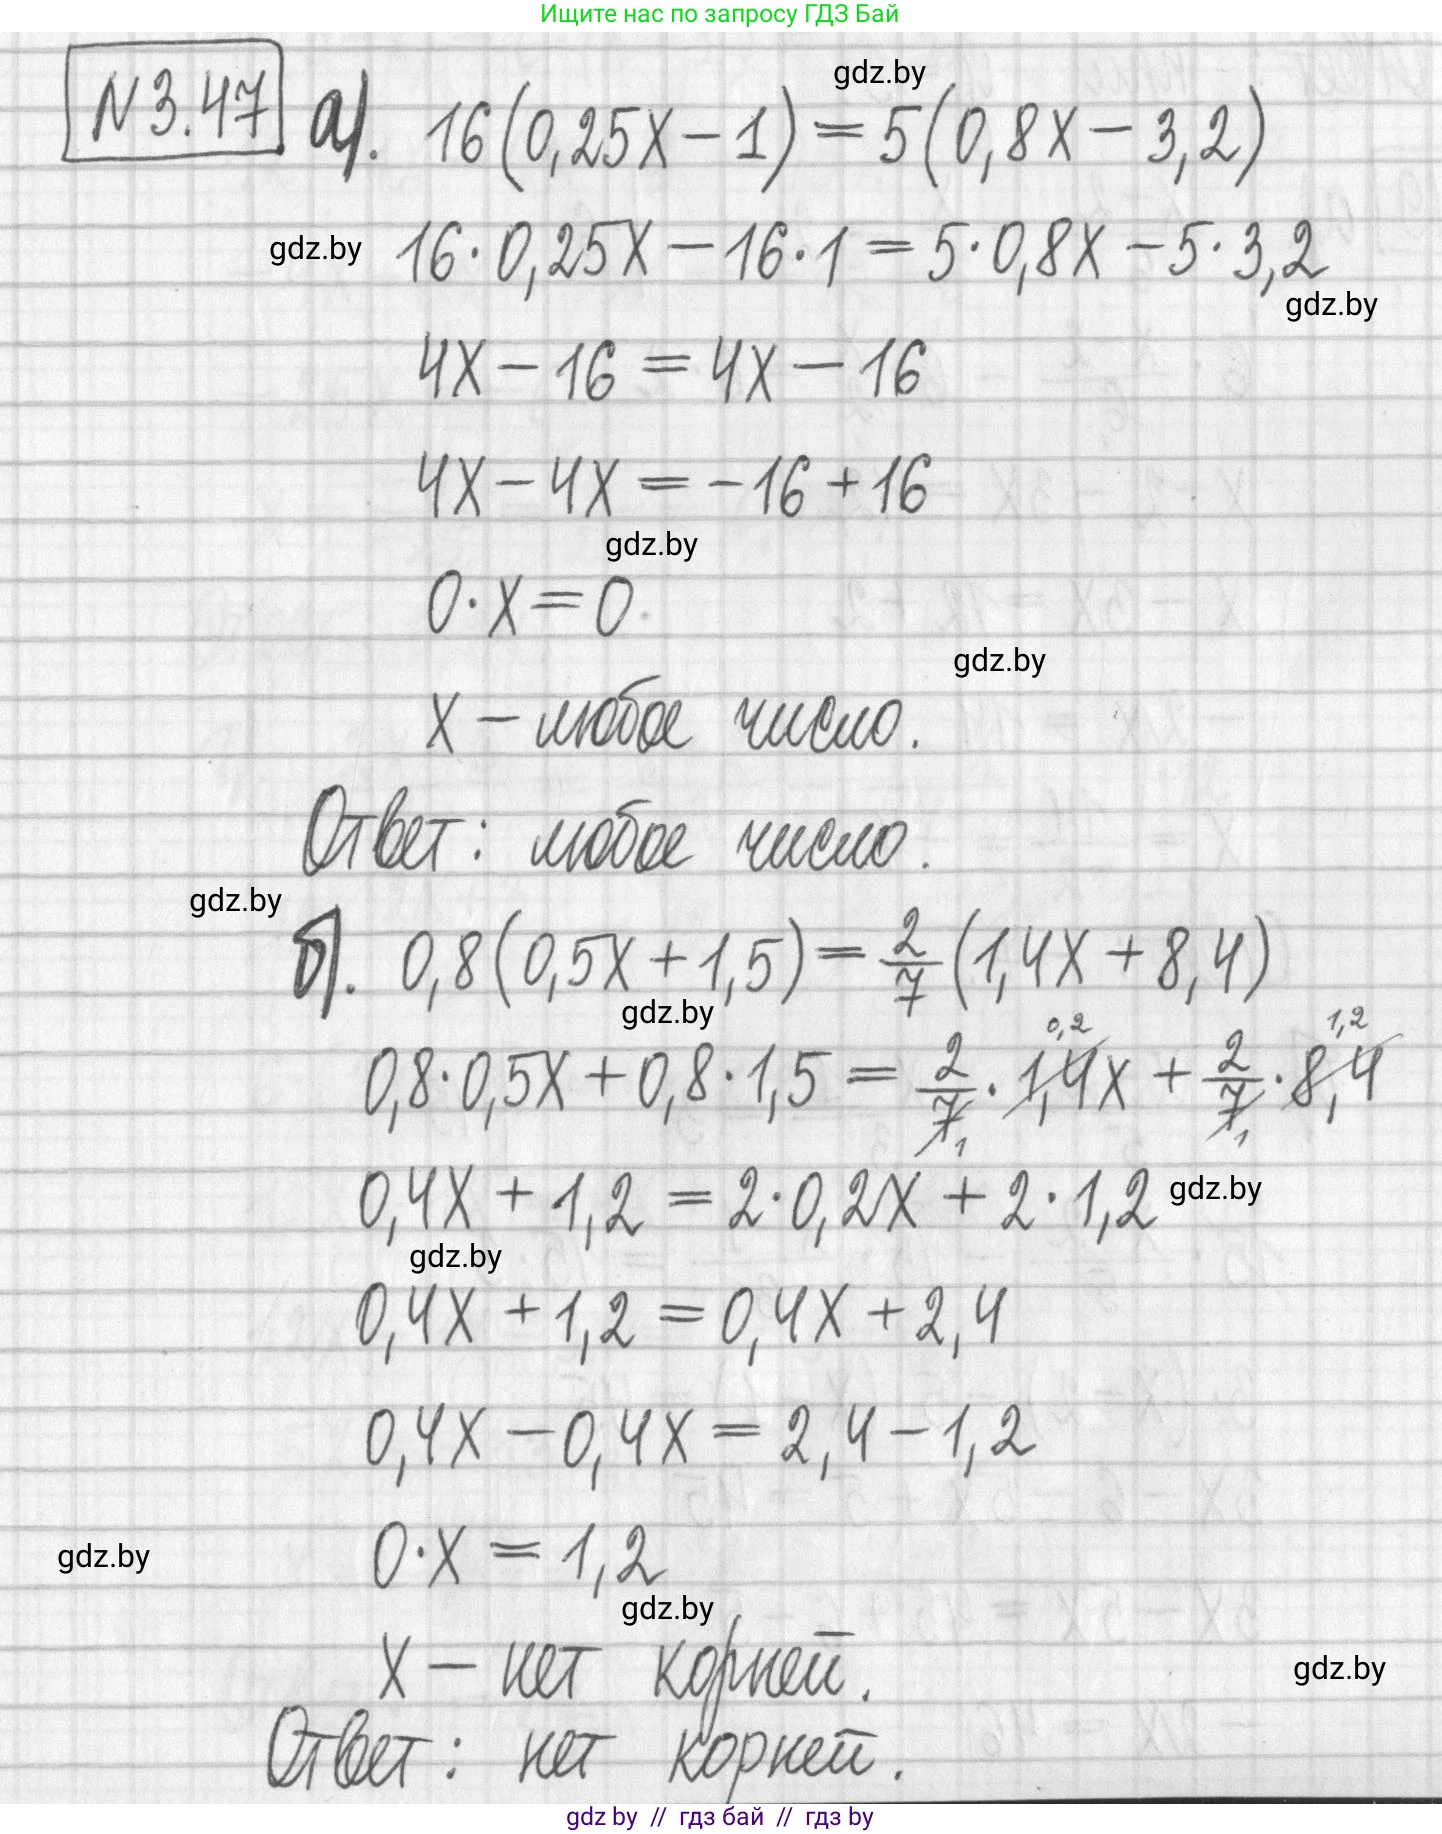 Ищите нас по запросу ГДЗ Бай
gdz.by
N3.47 а). 16(0,25x − 1) = 5(0,8x − 3,2)
gdz.by 16·0,25x − 16·1 = 5·0,8x − 5·3,2
gdz.by
4x − 16 = 4x − 16
4x − 4x = −16 + 16
gdz.by
0·x = 0
gdz.by
x − любое число.
Ответ: любое число.
gdz.by
б). 0,8(0,5x + 1,5) = 2/7 (1,4x + 8,4)
gdz.by
0,2 1,2
0,8·0,5x + 0,8·1,5 = 2/7 · 1,4x + 2/7 · 8,4
1 1
0,4x + 1,2 = 2·0,2x + 2·1,2 gdz.by
gdz.by
0,4x + 1,2 = 0,4x + 2,4
0,4x − 0,4x = 2,4 − 1,2
gdz.by 0·x = 1,2
gdz.by
x − нет корней. gdz.by
Ответ: нет корней.
gdz by // гдз бай // гдз by